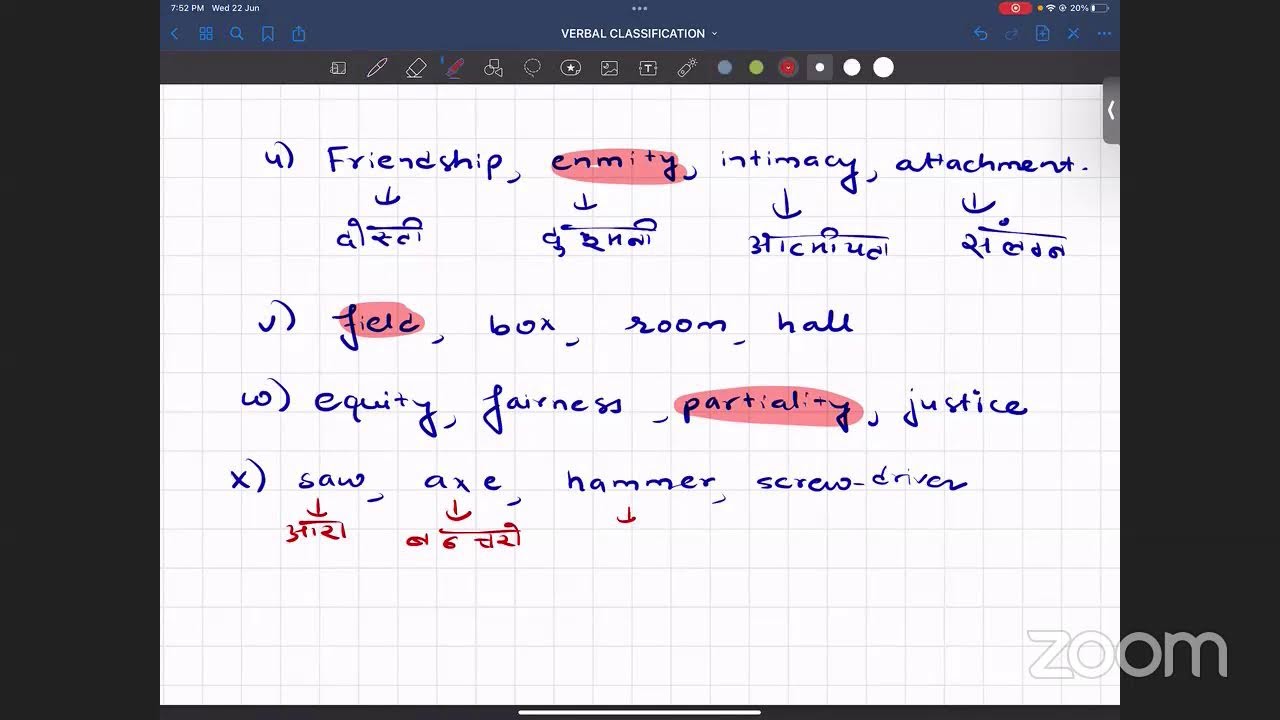 7:52 PM Wed 22 Jun
20%
VERBAL CLASSIFICATION
u) Friendship, enmity, intimacy, attachment.
दोस्ती दुश्मनी आत्मीयता संलग्न
v) field, box, room, hall
w) equity, fairness, partiality, justice
x) saw, axe, hammer, screw-driver
आरा
zoom